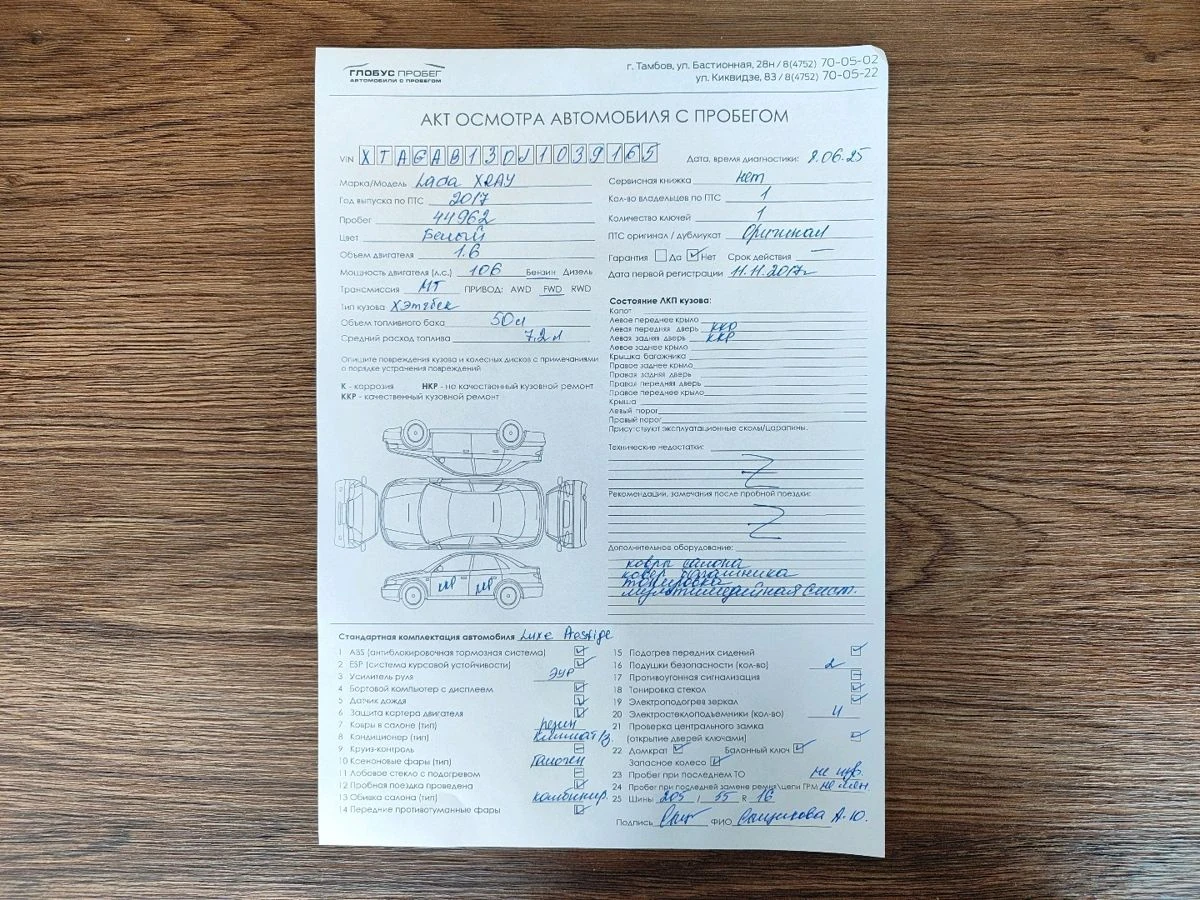 ГЛОБУС ПРОБЕГ
АВТОМОБИЛИ С ПРОБЕГОМ
г. Тамбов, ул. Бастионная, 28н / 8(4752) 70-05-02
ул. Киквидзе, 83 / 8(4752) 70-05-22
АКТ ОСМОТРА АВТОМОБИЛЯ С ПРОБЕГОМ
VIN XTAGAB130J1039165
Дата, время диагностики: 8.06.25
Марка/Модель Lada XRAY
Год выпуска по ПТС 2017
Пробег 44962
Цвет Белый
Объем двигателя 1.6
Мощность двигателя (л.с.) 106 Бензин Дизель
Трансмиссия МТ ПРИВОД: AWD FWD RWD
Тип кузова Хэтчбек
Объем топливного бака 50л
Средний расход топлива 7,2 л
Опишите повреждения кузова и колесных дисков с примечаниями
о порядке устранения повреждений
К - коррозия НКР - не качественный кузовной ремонт
ККР - качественный кузовной ремонт
Сервисная книжка нет
Кол-во владельцев по ПТС 1
Количество ключей 1
ПТС оригинал / дубликат Оригинал
Гарантия Да Нет Срок действия —
Дата первой регистрации 11.11.2017г
Состояние ЛКП кузова:
Капот
Левое переднее крыло
Левая передняя дверь ККР
Левая задняя дверь ККР
Левое заднее крыло
Крышка багажника
Правое заднее крыло
Правая задняя дверь
Правая передняя дверь
Правое переднее крыло
Крыша
Левый порог
Правый порог
Присутствуют эксплуатационные сколы/царапины.
Технические недостатки:
Z
Рекомендации, замечания после пробной поездки:
Z
Дополнительное оборудование:
ковры салона
ковер багажника
тонировка
мультимедийная сист.
Стандартная комплектация автомобиля Luxe Prestige
1 ABS (антиблокировочная тормозная система)
2 ESP (система курсовой устойчивости)
3 Усилитель руля ЭУР
4 Бортовой компьютер с дисплеем
5 Датчик дождя
6 Защита картера двигателя
7 Ковры в салоне (тип) резин
8 Кондиционер (тип)
9 Круиз-контроль
10 Ксеноновые фары (тип) Галоген
11 Лобовое стекло с подогревом
12 Пробная поездка проведена
13 Обивка салона (тип) комбинир.
14 Передние противотуманные фары
15 Подогрев передних сидений
16 Подушки безопасности (кол-во) 2
17 Противоугонная сигнализация
18 Тонировка стекол
19 Электроподогрев зеркал
20 Электростеклоподъемники (кол-во) 4
21 Проверка центрального замка
(открытие дверей ключами)
22 Домкрат Балонный ключ
Запасное колесо
23 Пробег при последнем ТО
24 Пробег при последней замене ремня\цепи ГРМ
25 Шины 205 / 55 R 16
Подпись ФИО А.Ю.